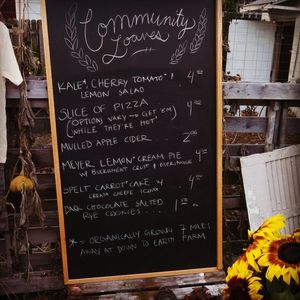 Community
Loaves
KALE*, CHERRY TOMATO* & 4.00
LEMON SALAD
SLICE OF PIZZA 4.00
(OPTIONS VARY → GET 'EM)
(WHILE THEY'RE HOT)
MULLED APPLE CIDER 2.00
MEYER LEMON* CREAM PIE 4.00
W/ BUCKWHEAT CRUST & MERINGUE
SPELT CARROT* CAKE w/ 4.00
CREAM CHEESE ICING
DARK CHOCOLATE SALTED
RYE COOKIES ...
* = ORGANICALLY GROWN 7 MILES
AWAY AT DOWN TO EARTH FARM